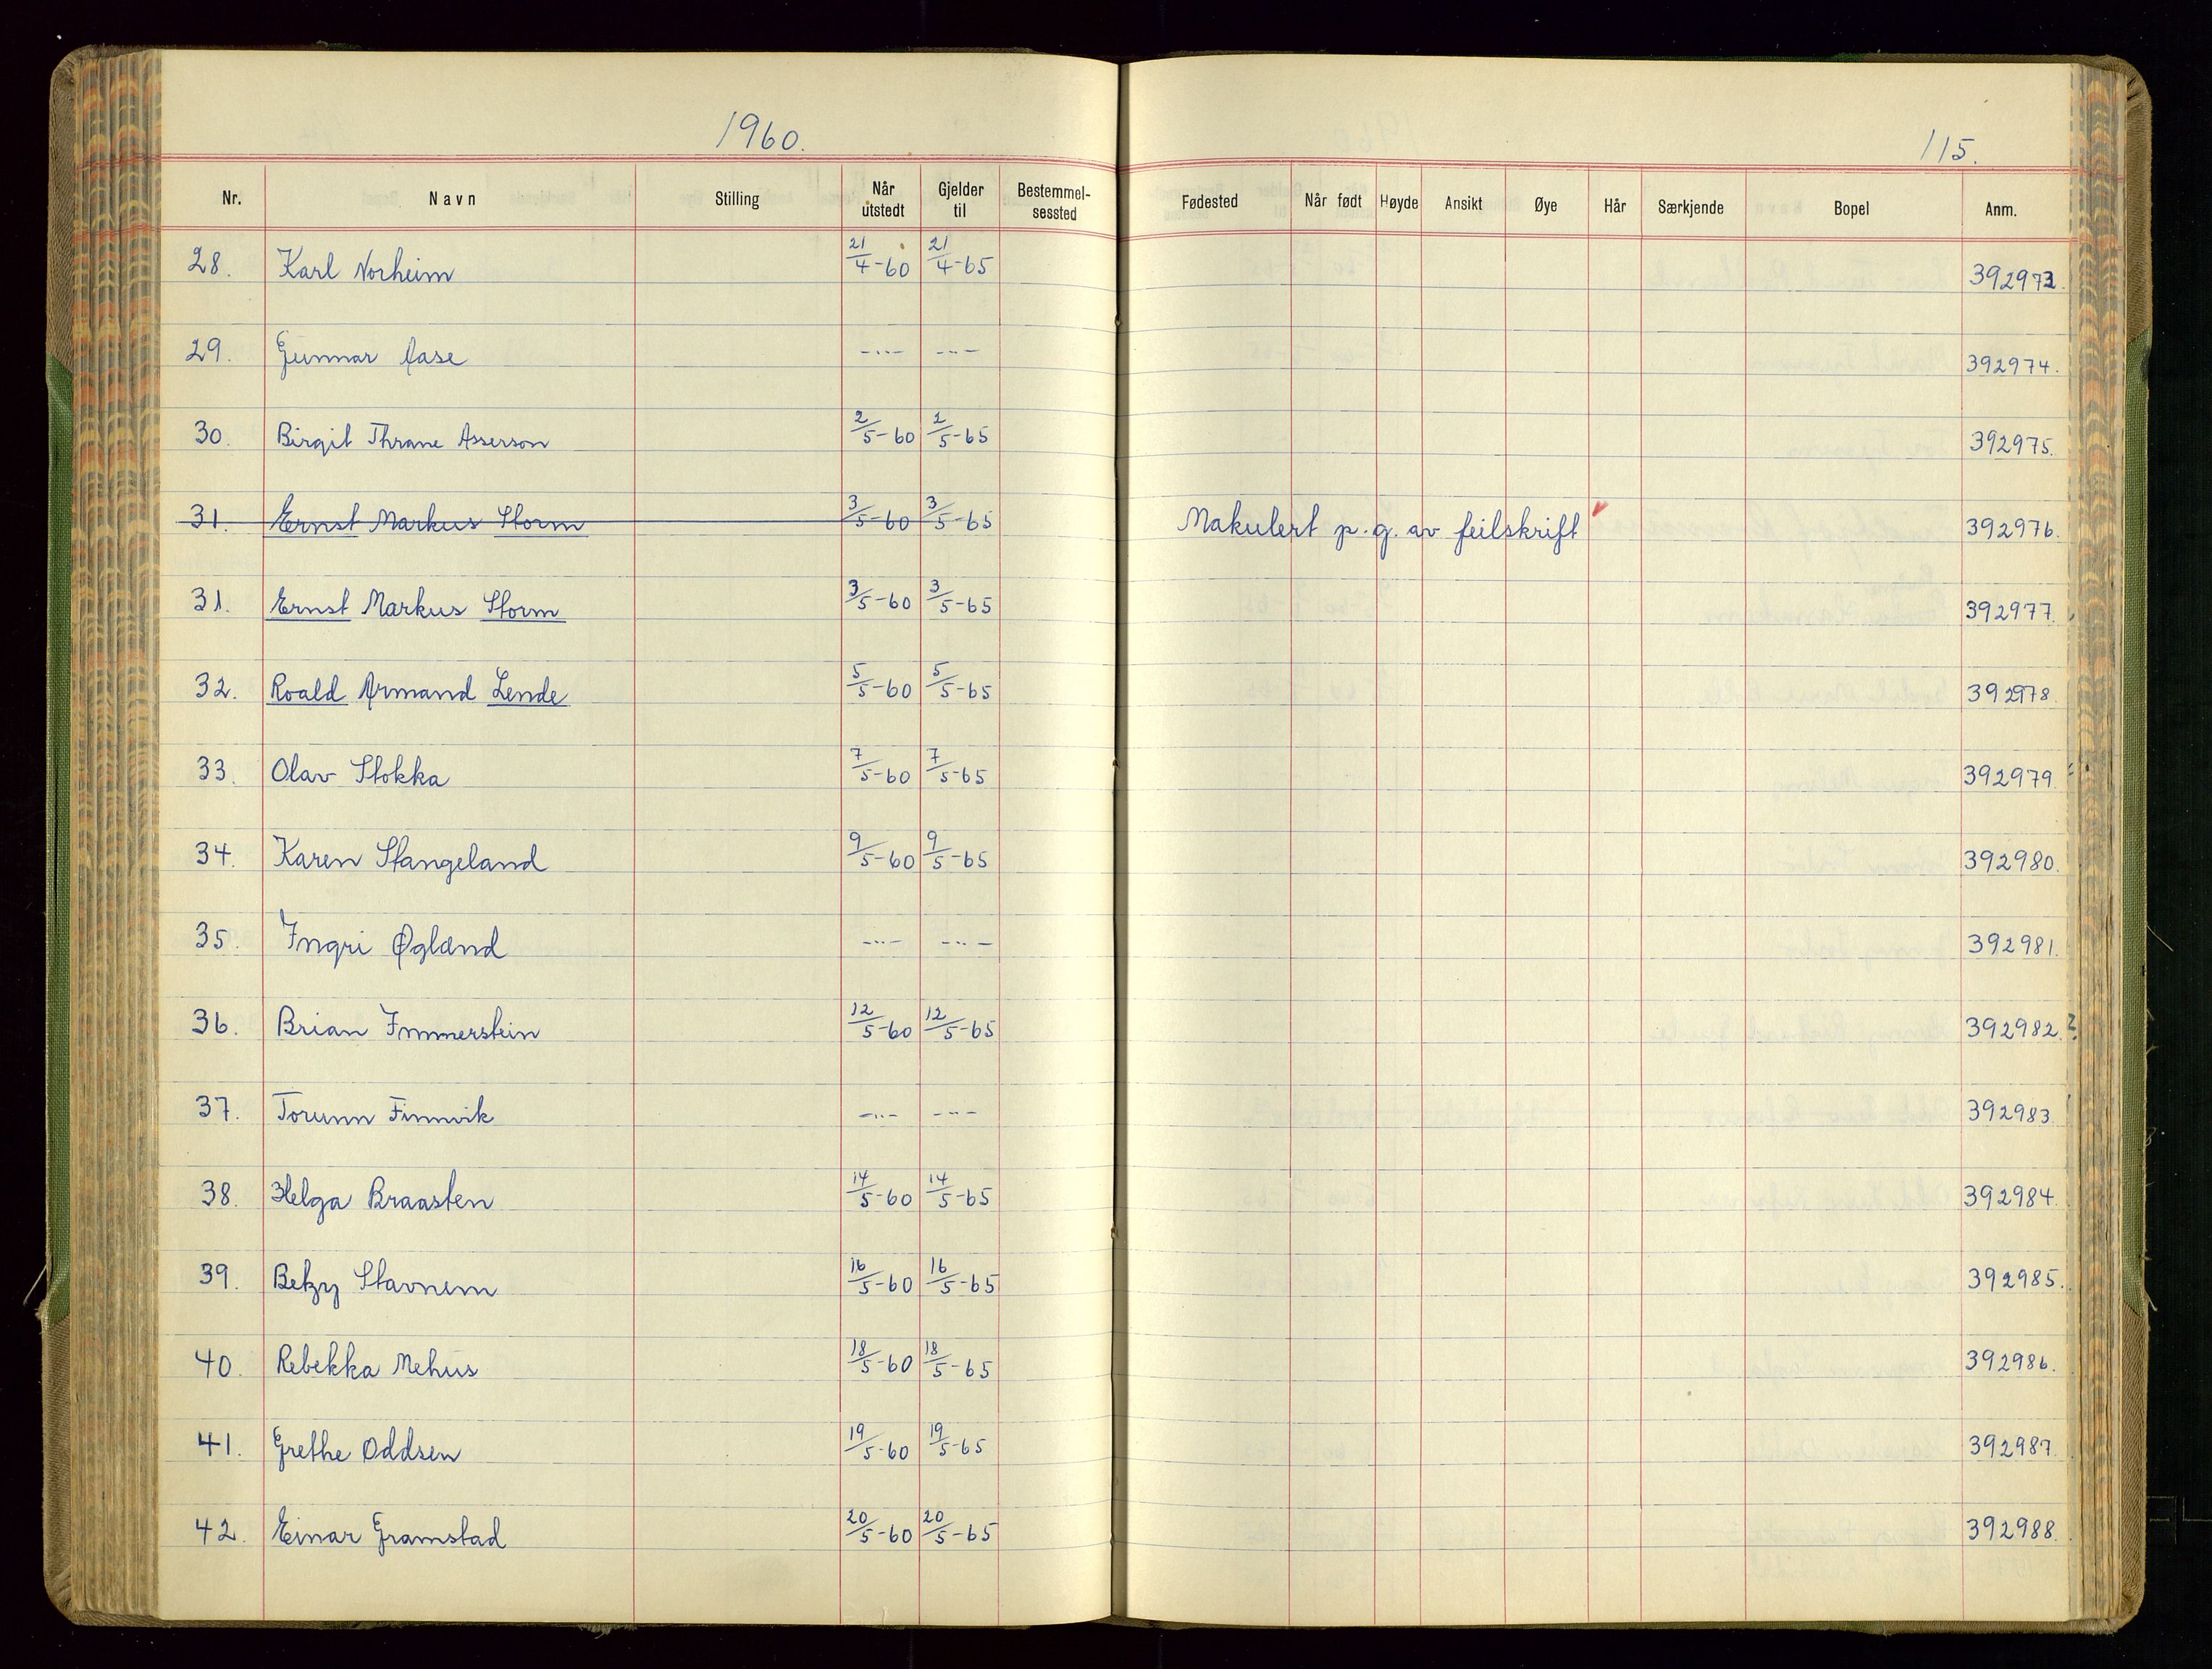 1960.
115.
Nr. Navn Stilling Når utstedt Gjelder til Bestemmel-sessted Fødested Når født Høyde Ansikt Øye Hår Særkjende Bopel Anm.
28. Karl Norheim 21/4-60 21/4-65 392973.
29. Gunnar Aase -"- -"- 392974.
30. Birgit Thrane Asserson 2/5-60 2/5-65 392975.
31. Ernst Markus Storm 3/5-60 3/5-65 Makulert p.g. av feilskrift 392976.
31. Ernst Markus Storm 3/5-60 3/5-65 392977.
32. Roald Armand Lende 5/5-60 5/5-65 392978.
33. Olav Stokka 7/5-60 7/5-65 392979.
34. Karen Stangeland 9/5-60 9/5-65 392980.
35. Ingri Øgland -"- -"- 392981.
36. Brian Immerstein 12/5-60 12/5-65 392982.
37. Torunn Finnvik -"- -"- 392983.
38. Helga Braasten 14/5-60 14/5-65 392984.
39. Betzy Stavnem 16/5-60 16/5-65 392985.
40. Rebekka Mehus 18/5-60 18/5-65 392986.
41. Grethe Oddsen 19/5-60 19/5-65 392987.
42. Einar Gramstad 20/5-60 20/5-65 392988.